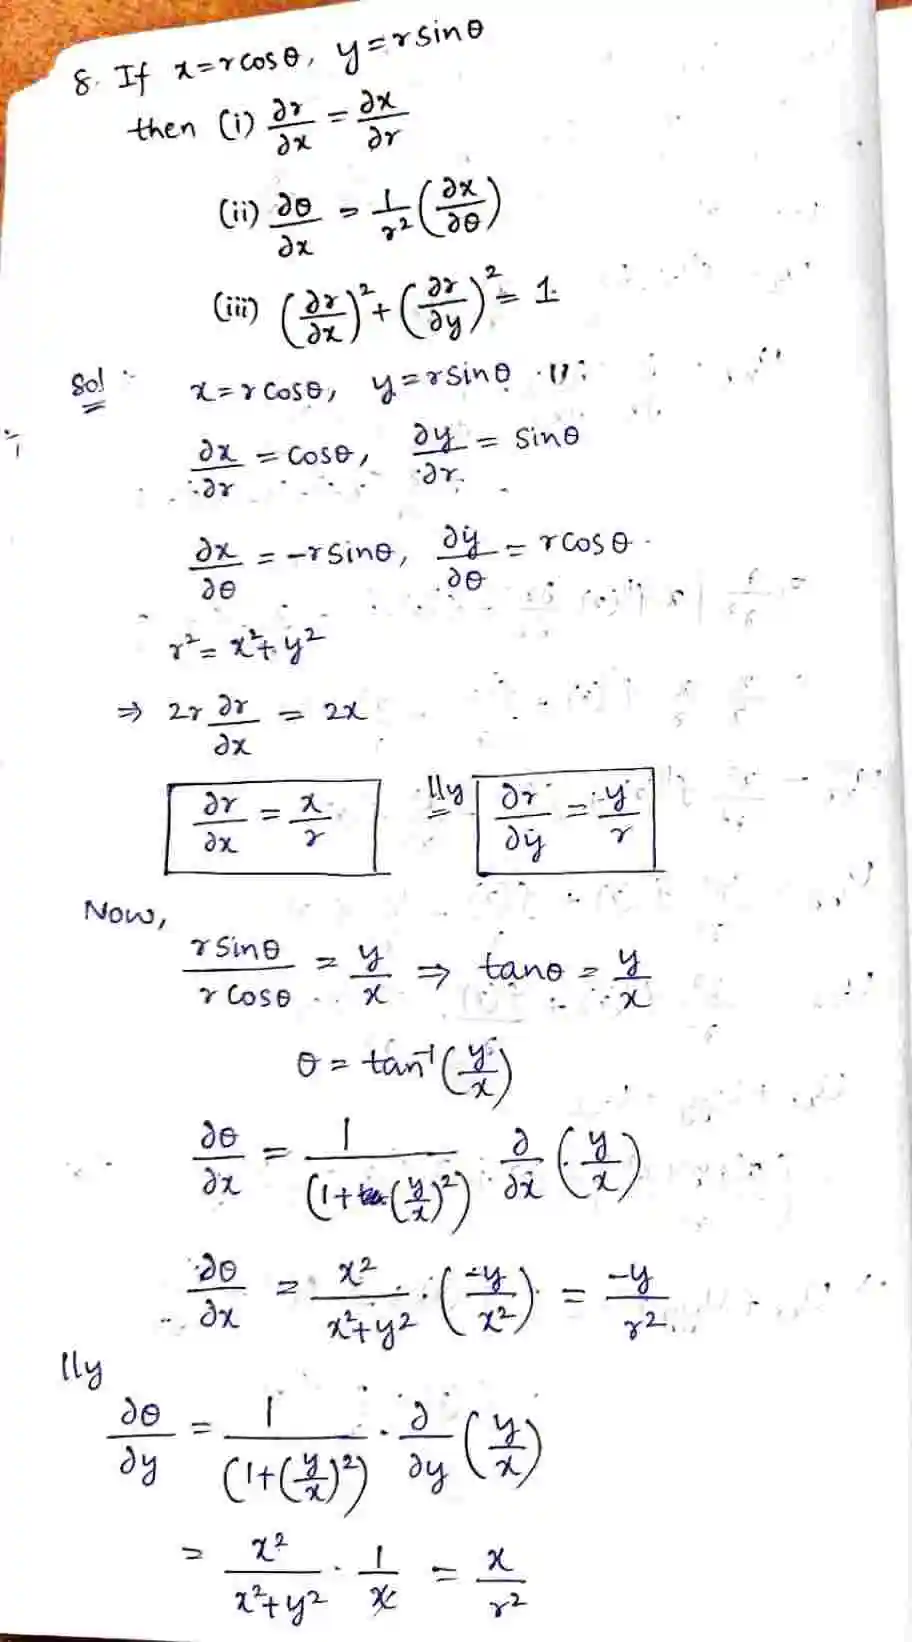 8. If x=rcosθ, y=rsinθ
then (i) ∂r/∂x = ∂x/∂r
(ii) ∂θ/∂x = 1/r² (∂x/∂θ)
(iii) (∂r/∂x)² + (∂r/∂y)² = 1.
Sol x=rcosθ, y=rsinθ
∂x/∂r = cosθ, ∂y/∂r = sinθ
∂x/∂θ = -rsinθ, ∂y/∂θ = rcosθ.
r² = x²+y²
⇒ 2r ∂r/∂x = 2x
∂r/∂x = x/r lly ∂r/∂y = y/r
Now,
rsinθ/rcosθ = y/x ⇒ tanθ = y/x
θ = tan⁻¹(y/x)
∂θ/∂x = 1/(1+(y/x)²) ∂/∂x (y/x)
∂θ/∂x = x²/(x²+y²) · (-y/x²) = -y/r²
lly
∂θ/∂y = 1/(1+(y/x)²) · ∂/∂y (y/x)
= x²/(x²+y²) · 1/x = x/r²